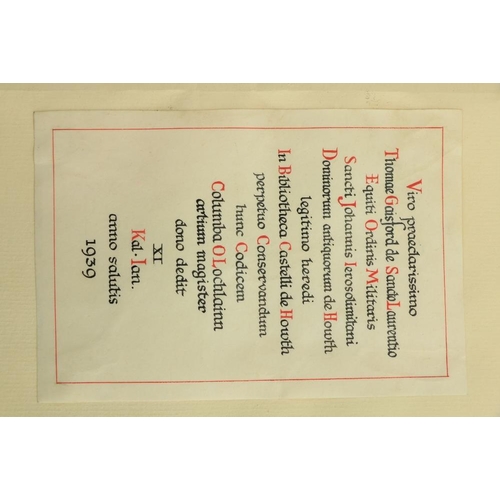 Viro praeclarissimo
Thomae Gaisford de Sancto Laurentio
Equiti Ordinis Militaris
Sancti Johannis Ierosolimitani
Dominorum antiquorum de Howth
legitimo heredi
In Bibliotheca Castelli de Howth
perpetuo Conservandum
hunc Codicem
Columba O Lochlainn
artium magister
dono dedit
XI
Kal. Ian.
anno salutis
1939